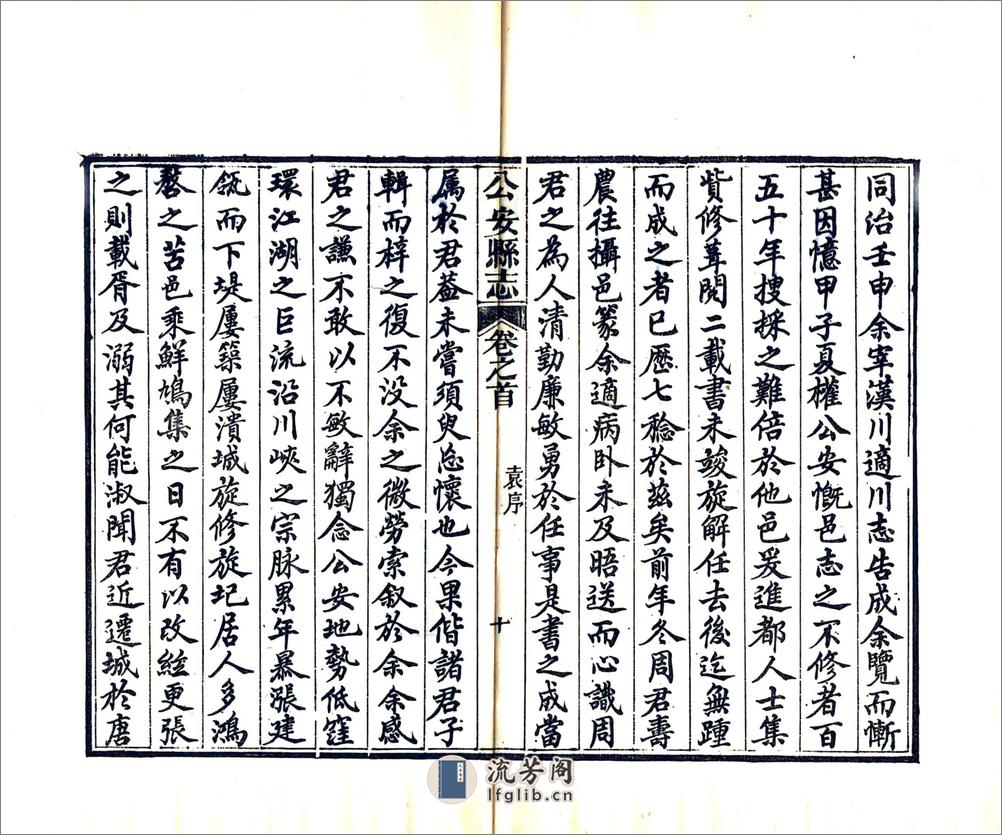 同治壬申余宰漢川適川志告成余覽而慚
甚因憶甲子夏權公安慨邑志之不修者百
五十年搜採之難倍於他邑爰進都人士集
貲修葺閱二載書未竣旋解任去後迄無踵
而成之者已歷七稔於茲矣前年冬周君壽
農往攝邑篆余適病卧未及晤送而心識周
君之為人清勤廉敏勇於任事是書之成當
公安縣志 卷之首 袁序 十
属於君葢未嘗須臾忘懷也今果偕諸君子
輯而梓之復不没余之微勞索叙於余余感
君之謙不敢以不敏辭獨念公安地勢低窪
環江湖之巨流沿川峽之宗脉累年暴漲建
瓴而下堤屢築屢潰城旋修旋圮居人多鴻
嗸之苦邑乘鮮鳩集之日不有以改絃更張
之則載胥及溺其何能淑聞君近遷城於唐
流芳阁
lfglib.cn